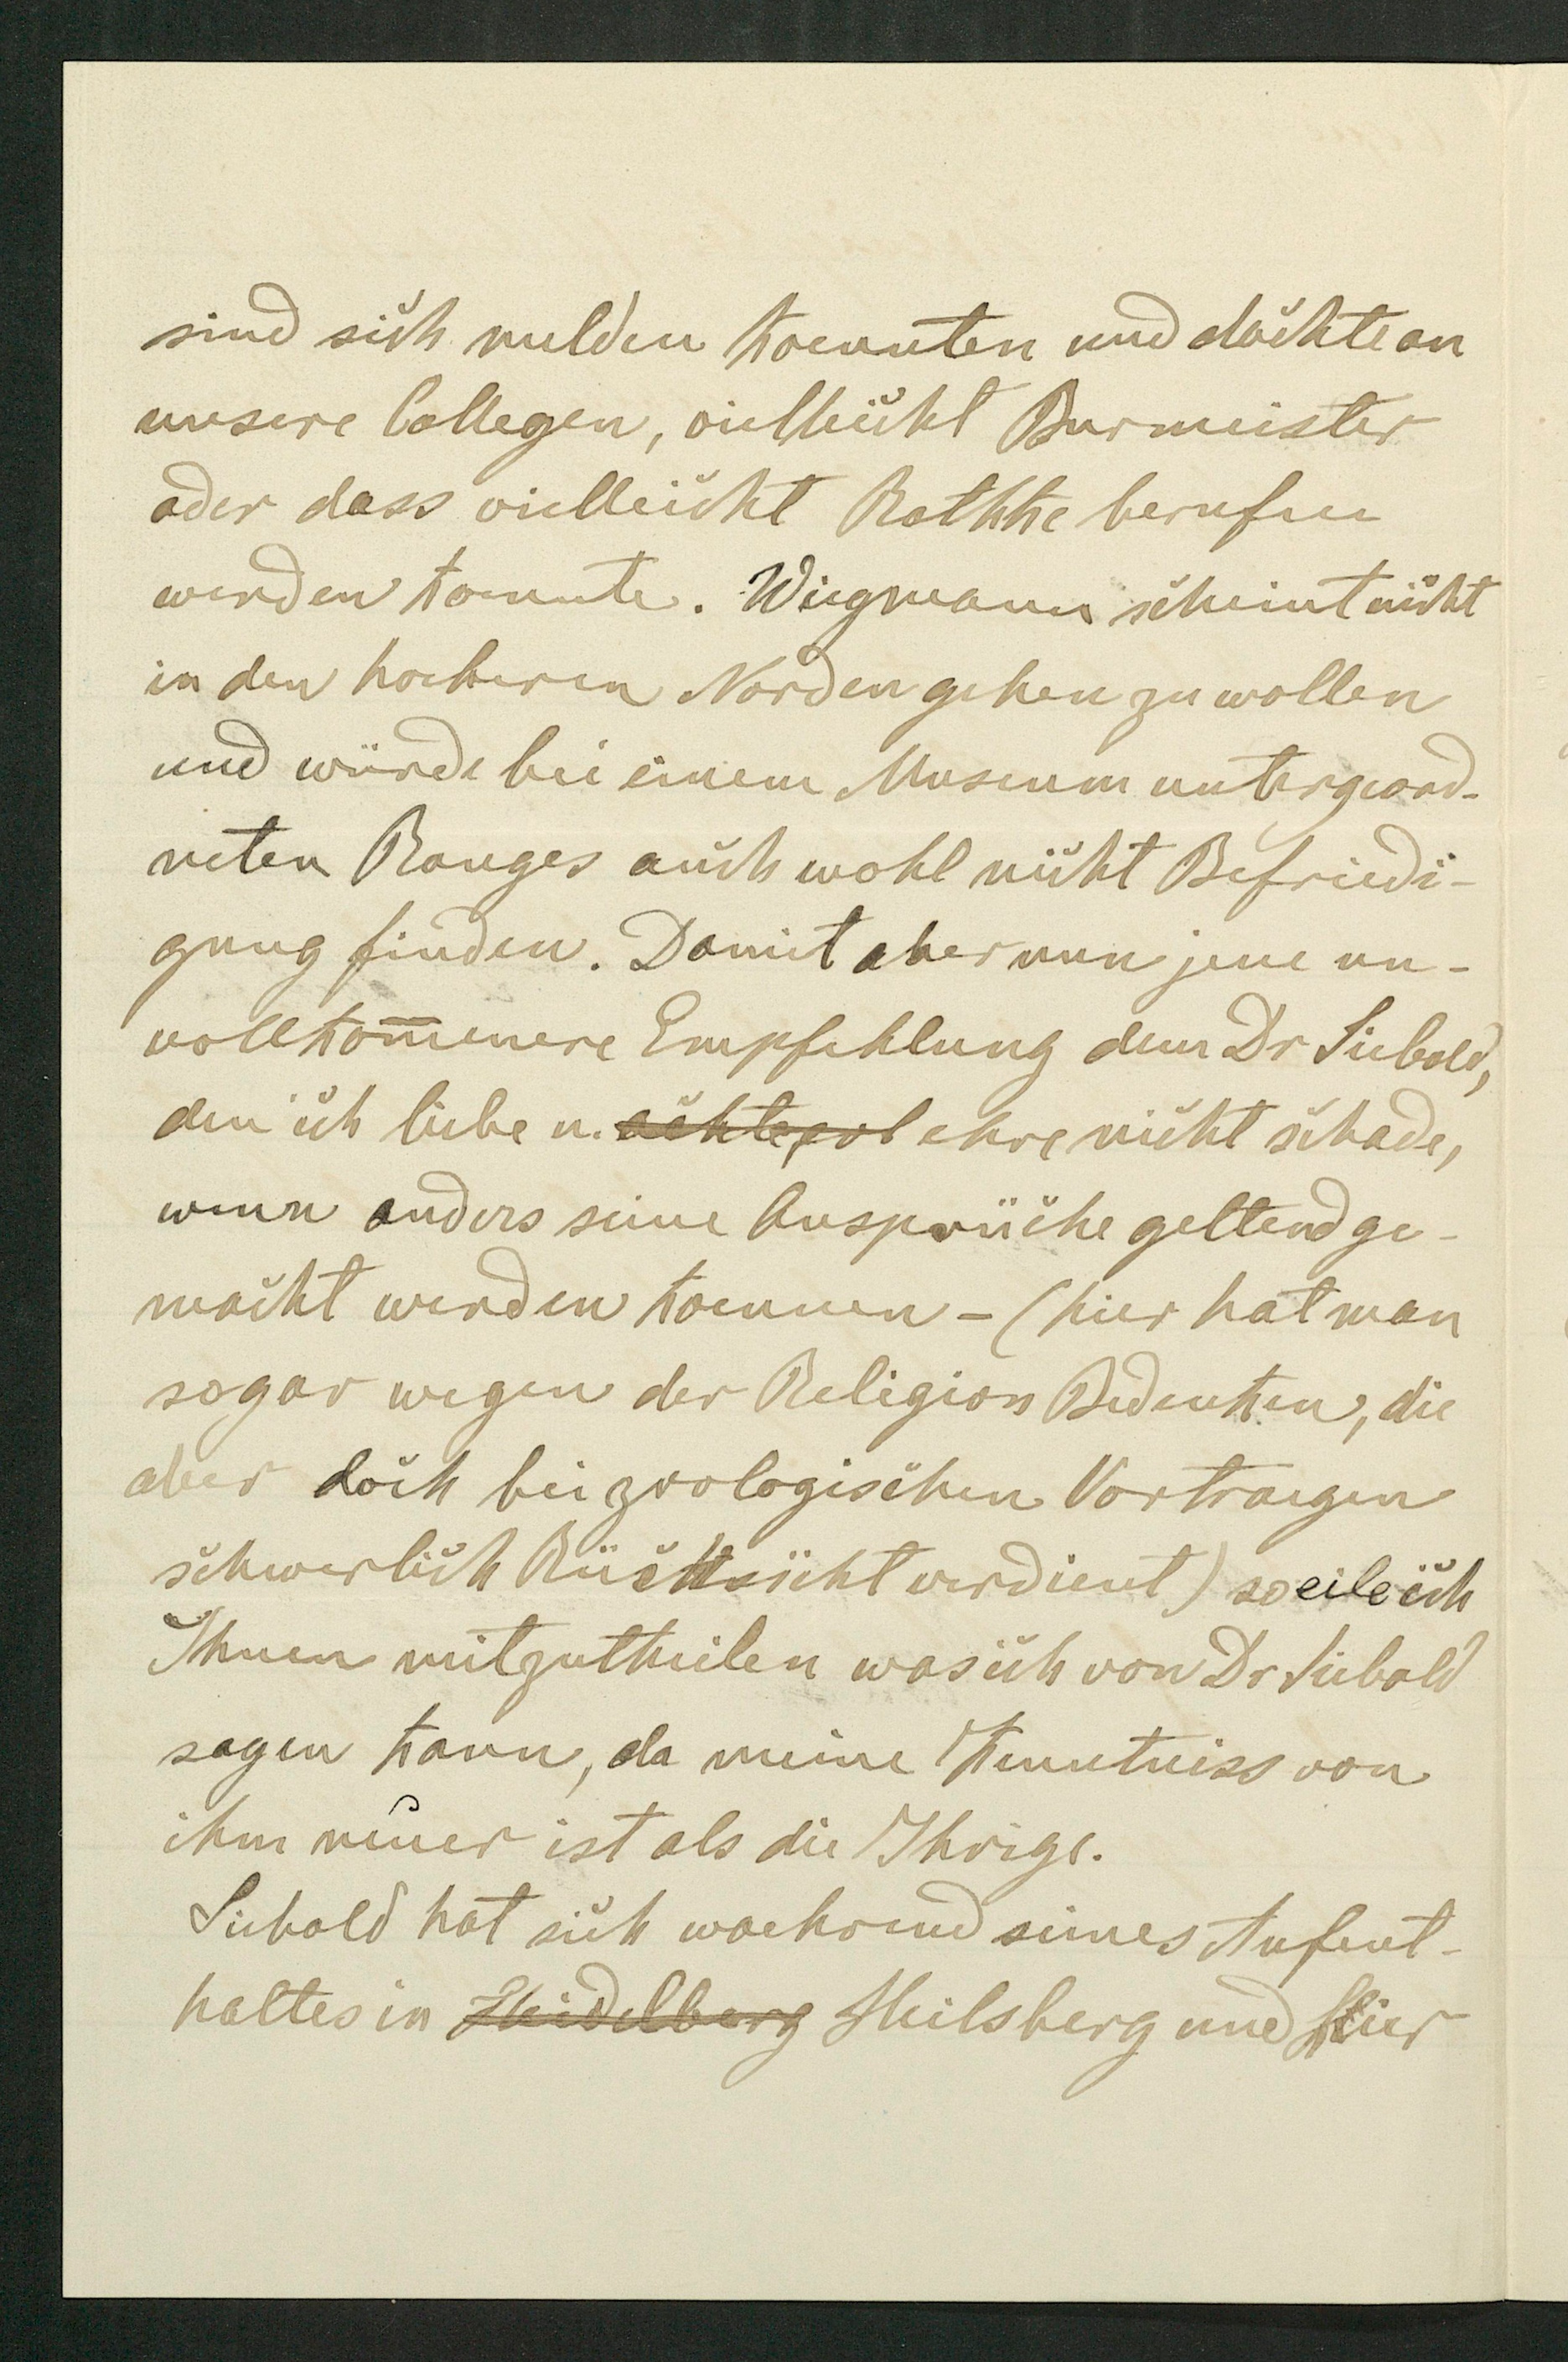 sind sich melden koennten und dachte an
unsere Collegen, vielleicht Burmeister
oder dass vielleicht Rathke berufen
werden konnte. Wiegmann scheint nicht
in den hoeheren Norden gehen zu wollen
und würde bei einem Museum untergeord-
neten Ranges auch wohl nicht Befriedi-
gung finden. Damit aber nun jene un-
vollkom̅enere Empfehlung dem Dr Siebold,
den ich liebe u. achte, ehre nicht schade,
wenn anders seine Ansprüche geltend ge-
macht werden koennen – (hier hat man
sogar wegen der Religion Bedenken, die
aber doch bei zoologischen Vortraegen
schwerlich Rücksicht verdient) so eile ich
Ihnen mitzutheilen was ich von Dr Siebold
sagen kann, da meine Kenntniss von
ihm neuer ist als die Ihrige.
Siebold hat sich waehrend seines Aufent-
haltes in Heidelberg Heilsberg und hier